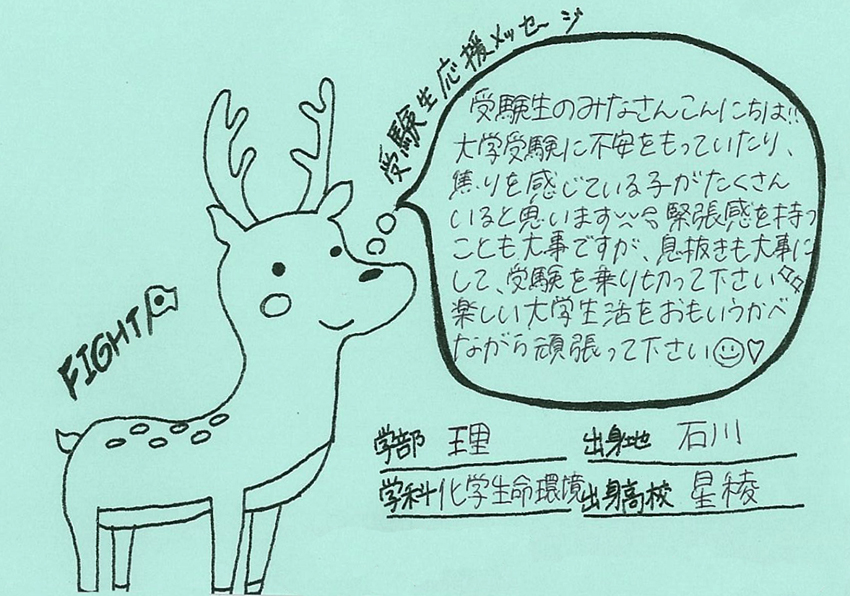 受験生応援メッセージ
受験生のみなさんこんにちは!!
大学受験に不安をもっていたり、
焦りを感じている子がたくさん
いると思います 緊張感を持つ
ことも大事ですが、息抜きも大事に
して、受験を乗り切って下さい
楽しい大学生活をおもいうかべ
ながら頑張って下さい
FIGHT
学部 理
出身地 石川
学科 化学生命環境
出身高校 星稜